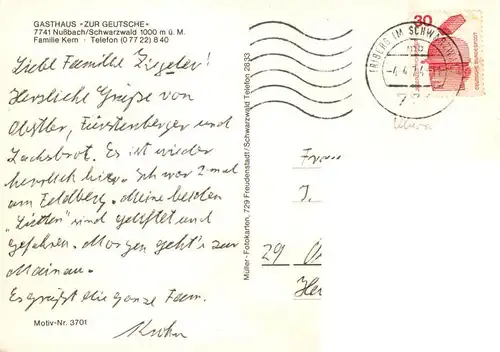 GASTHAUS »ZUR GEUTSCHE«
7741 Nußbach/Schwarzwald 1000 m ü. M.
Familie Kern · Telefon (0 77 22) 8 40
Liebe Familie Ziegler!
Herzliche Grüße von
Obstler, Fürstenberger und
Lachsbrot. Es ist wieder
herrlich hier. Ich war 2 mal
am Feldberg. Meine beiden
" " sind geliftet und
gefahren. Morgen geht's zur
Mainau.
Es grüßt die ganze Fam.
Motiv-Nr. 3701
Müller-Fotokarten, 729 Freudenstadt/Schwarzwald Telefon 28 33
30
TRIBERG IM SCHWARZW
DEUTSCHE BUNDESPOST
Frau
I.
29